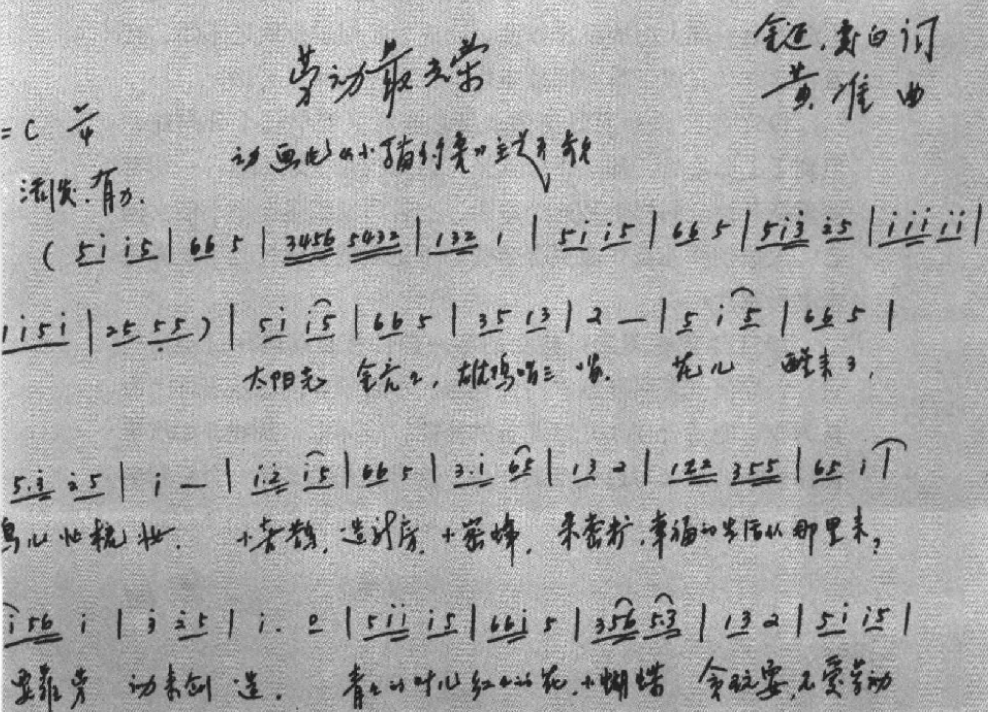 劳动最光荣
金近、夏白词
黄准曲
=C 2/4
动画片《小猫钓鱼》主题歌
活泼.有力.
( 5i i5 | 66 5 | 3456 5432 | 132 1 | 5i i5 | 66 5 | 5i3 25 | iii ii |
1i5i | 25 55 ) | 5i i5 | 66 5 | 35 13 | 2 — | 5 i5 | 66 5 |
太阳光 金亮2, 雄鸡唱三唱. 花儿 醒来了,
5.3 25 | i — | i.2 i5 | 66 5 | 3.i 65 | 13 2 | 122 355 | 65 i |
鸟儿忙梳妆. 小喜鹊, 造新房, 小蜜蜂, 采蜜糖, 幸福的生活从那里来,
i56 i | 3 25 | i. 0 | 5ii i5 | 66i 5 | 356 5.3 | 13 2 | 5i i5 |
要靠劳 动来创造. 青青的叶儿红红的花, 小蝴蝶 贪玩耍, 不爱劳动